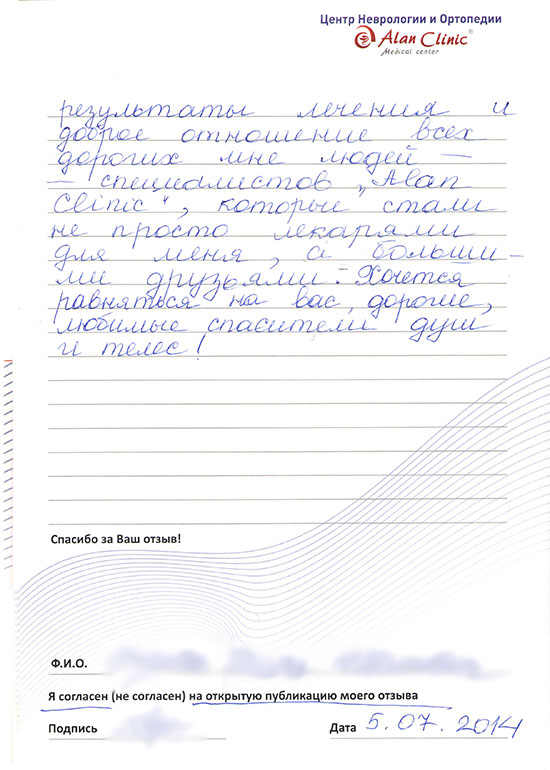 Центр Неврологии и Ортопедии
Alan Clinic®
Medical center
результаты лечения и
доброе отношение всех
дорогих мне людей —
— специалистов „Alan
Clinic“, которые стали
не просто лекарями
для меня, а больши-
ми друзьями. Хочется
равняться на вас, дорогие,
любимые спасители душ
и телес!
Спасибо за Ваш отзыв!
Ф.И.О.
Я согласен (не согласен) на открытую публикацию моего отзыва
Подпись
Дата 5.07.2014